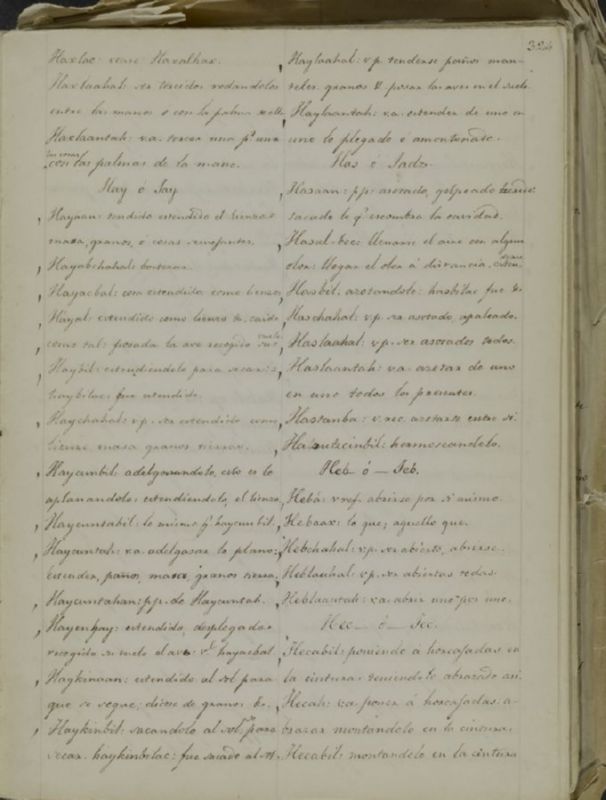 324
Haxlac: vease Haxalhax.
Haxlaahal: ser torcidos rodandolos
entre las manos ó con la palma
Haxlaantah: v.a. torcer una pr una
con las palmas de la mano.
Hay ó Jay
Hayaan: tendido estendido el lienzo
masa, granos, ó cosas semejantes.
Hayabchahal: bostezar.
Hayacbal: cosa estendida como lienzo,
Hayal: estendido como lienzo &c. caido
como tal: posada la ave recogido su vuelo
Haybil: estendiendolo para secarse
haybilac: fue estendido.
Haychahal: v.p. ser estendido como
lienzo masa granos tierra.
Haycunbil: adelgazandolo, esto es lo
aplanandolo: estendiendolo, el lienzo,
Haycuntabil: lo mismo q.e haycunbil.
Haycuntah: v.a. adelgasar lo plano:
estender, paños, masa, granos tierra,
Haycuntahan: p.p. de Haycuntah.
Hayenhay: estendido, desplegado
recogido su vuelo el ave: v.e hayacbal.
Haykinaan: estendido al sol para
que se seque, dicese de granos &c.
Haykinbil: sacandolo al sol para
secar. haykinbilac: fue sacado al sol.
Haylaahal: v.p. tenderse paños man-
teles, granos &c. posar las aves en el suelo
Haylaantah: v.a. estender de uno en
uno lo plegado ó amontonado.
Has ó Jads.
Hasaan: p.p. asotado, golpeado
sacado lo q.e encombra la cavidad.
Hasal-boc: llenarse el aire con algun
olor: llegar el olor á distancia.
Hasbil: azotandolo: hasbilac fue &c
Haschahal: v.p. ser asotado, apaleado.
Haslaahal: v.p. ser asotados todos.
Haslaantah: v.a. azotar de uno
en uno todos los presentes.
Hastanba: v. rec. azotarse entre sí.
Hadzutzcinbil: hermoseandolo.
Heb ó — Jeb.
Hebá: v. ref. abrirse por si mismo.
Hebaax: lo que; aquello que.
Hebchahal: v.p. ser abierto, abrirse.
Heblaahal: v.p. ser abiertas todas.
Heblaantah: v.a. abrir uno por uno.
Hec — ó — Jec.
Hecabil: poniendo á horcajadas en
la cintura, teniendolo abrazado asi.
Hecah: v.a. poner á horcajadas: a-
brazar montándolo en la cintura.
Hecabil: montandolo en la cintura